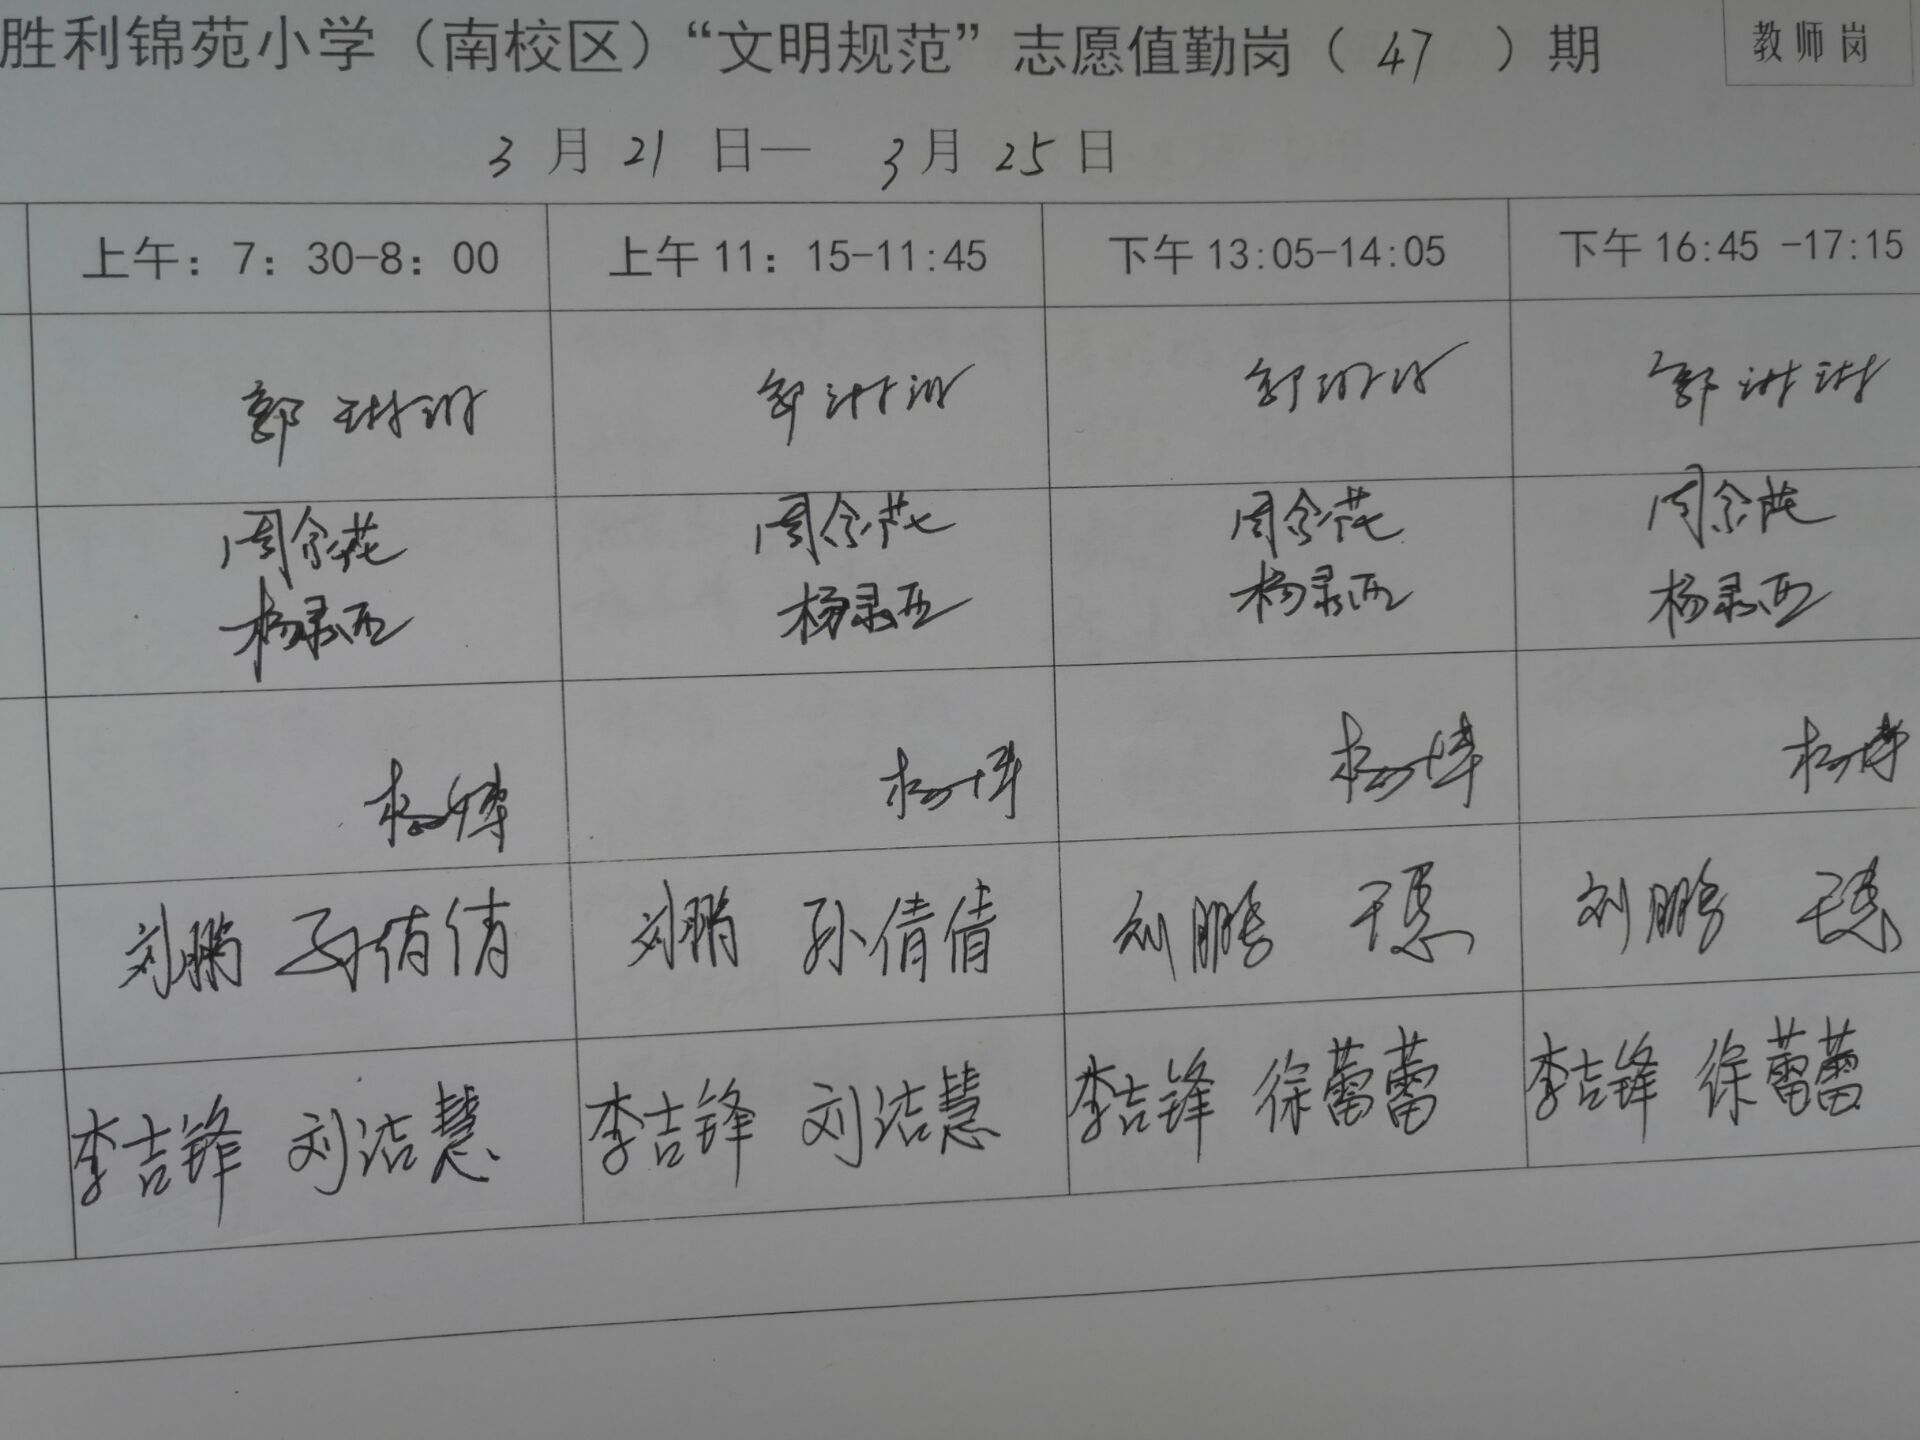 胜利锦苑小学（南校区）“文明规范”志愿值勤岗（47）期
教师岗
3月21日— 3月25日
上午：7：30-8：00 上午11：15-11:45 下午13:05-14:05 下午16:45 -17:15
郭琳琳 郭琳琳 郭琳琳 郭琳琳
周 周 周 周
杨录西 杨录西 杨录西 杨录西
杨 杨 杨 杨
刘鹏 孙倩倩 刘鹏 孙倩倩 刘鹏 刘鹏
李吉锋 刘洁慧 李吉锋 刘洁慧 李吉锋 徐蕾蕾 李吉锋 徐蕾蕾